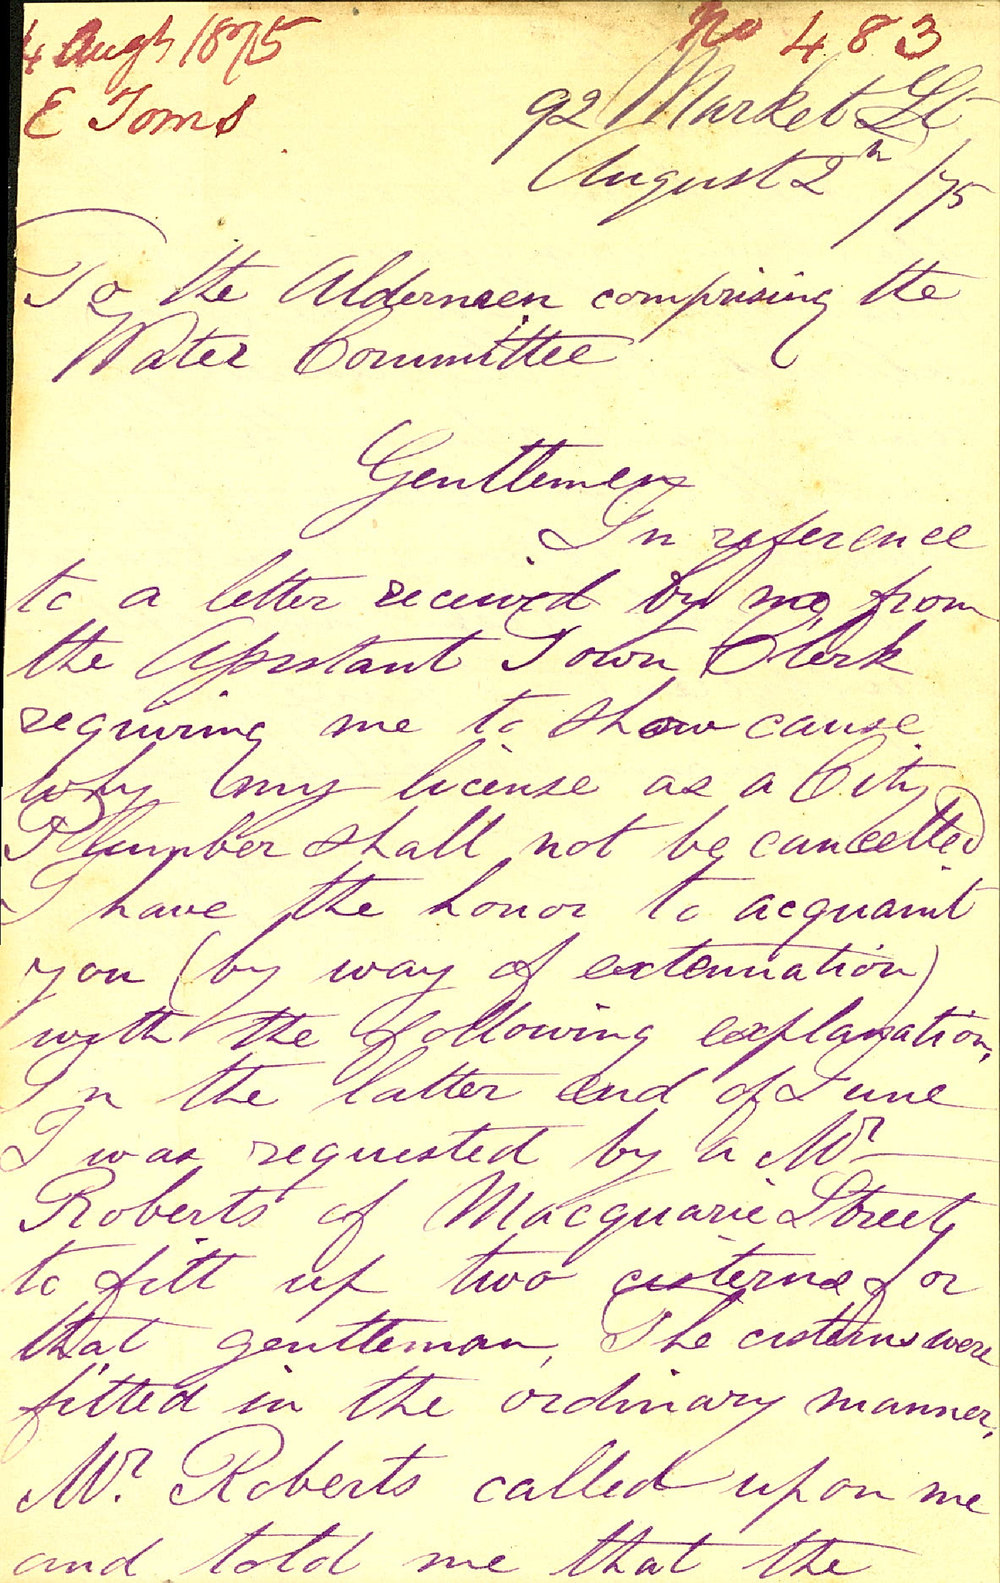 4 Augt 1875
No 483
E Toms
92 Market St
August 2n /75
To the Aldermen comprising the
Water Committee
Gentlemen
In reference
to a letter received by me from
the Assistant Town Clerk
requiring me to show cause
why my license as a City
Plumber shall not be cancelled
I have the honor to acquaint
you (by way of extenuation)
with the following explanation,
In the latter end of June
I was requested by a Mr
Roberts of Macquarie Street,
to fitt up two cisterns for
that gentleman, The cisterns were
fitted in the ordinary manner,
Mr. Roberts called upon me
and told me that the